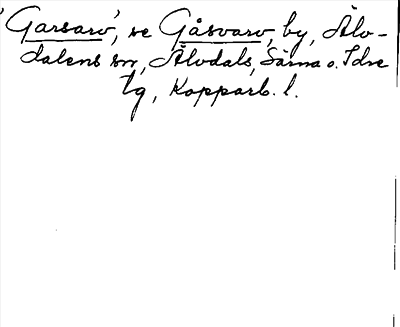 'Garsarv', se Gåsvarv, by, Älv-
dalens sn, Älvdals, Särna o. Idre
tg, Kopparb. l.